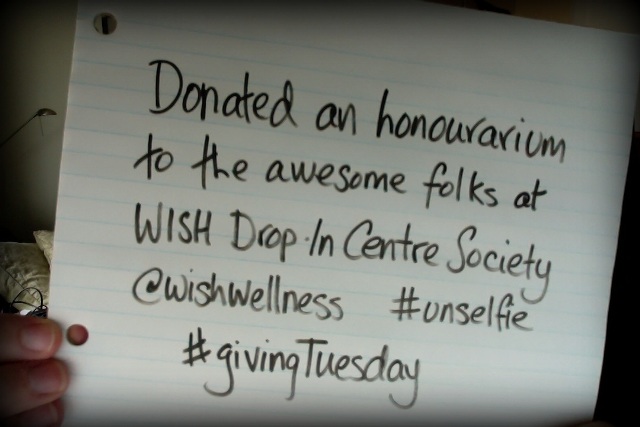 Donated an honourarium
to the awesome folks at
WISH Drop-In Centre Society
@wishwellness #unselfie
#givingTuesday